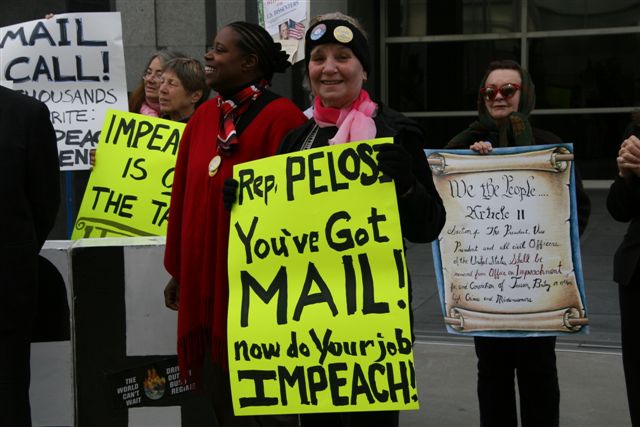 MAIL
CALL!
THOUSANDS
RITE:
IMPEACH
IS O
THE TA
Rep. PELOSI
You've Got
MAIL!
now do Your job
IMPEACH!
We the People....
Article II
Section 4 The President, Vice
President and all civil Officers
of the United States, Shall be
removed from Office on Impeachment
for, and Conviction of, Treason, Bribery, or other
high Crimes and Misdemeanors.
THE WORLD
CAN'T
WAIT
DRIVE
OUT
BUSH
REGIME